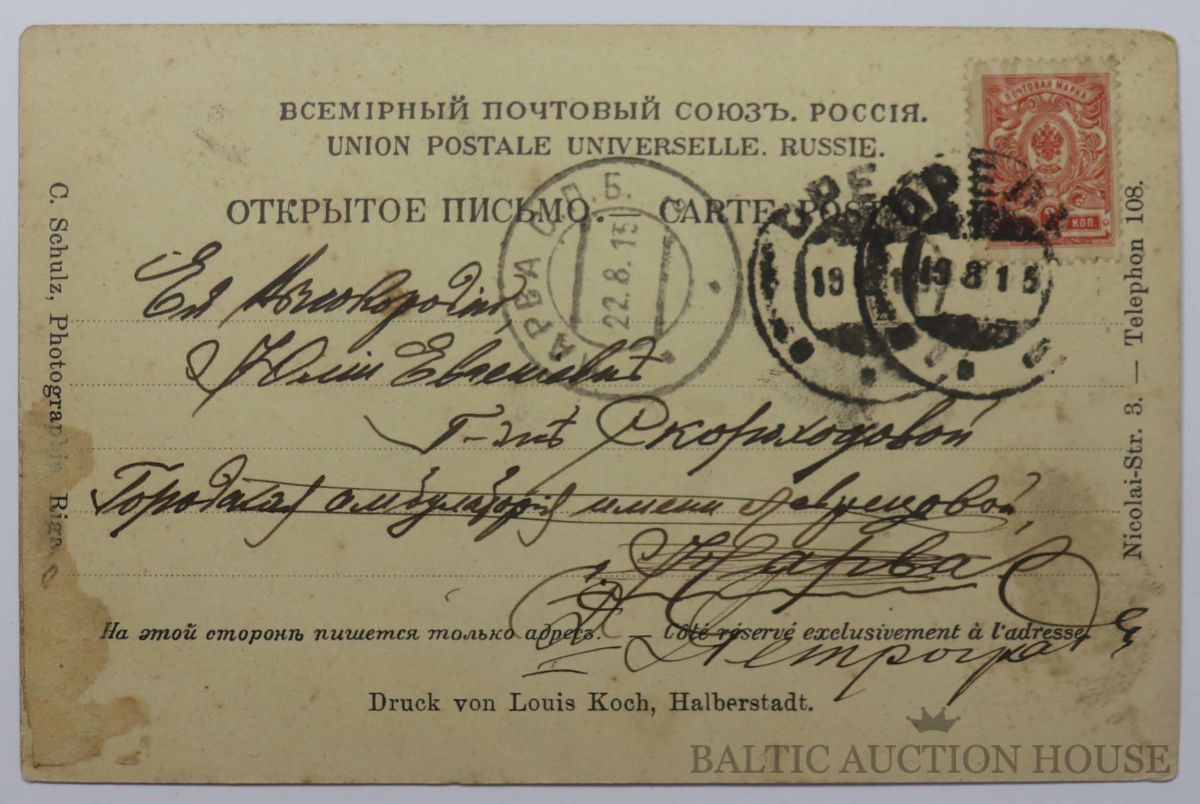 ВСЕМІРНЫЙ ПОЧТОВЫЙ СОЮЗЪ. РОССІЯ.
UNION POSTALE UNIVERSELLE. RUSSIE.
ОТКРЫТОЕ ПИСЬМО. — CARTE POST
ПОЧТОВАЯ МАРКА
КОП.
НАРВА СП.Б.
22.8.15
19
19 8 15
Ея Высокородію
Юліи
Г-жѣ Скороходовой
Городская амбулаторія имени
Нарва
Петрогра
На этой сторонѣ пишется только адресъ. — Côté réservé exclusivement à l'adresse.
Druck von Louis Koch, Halberstadt.
C. Schulz, Photographie, Riga
Nicolai-Str. 3. — Telephon 108.
BALTIC AUCTION HOUSE